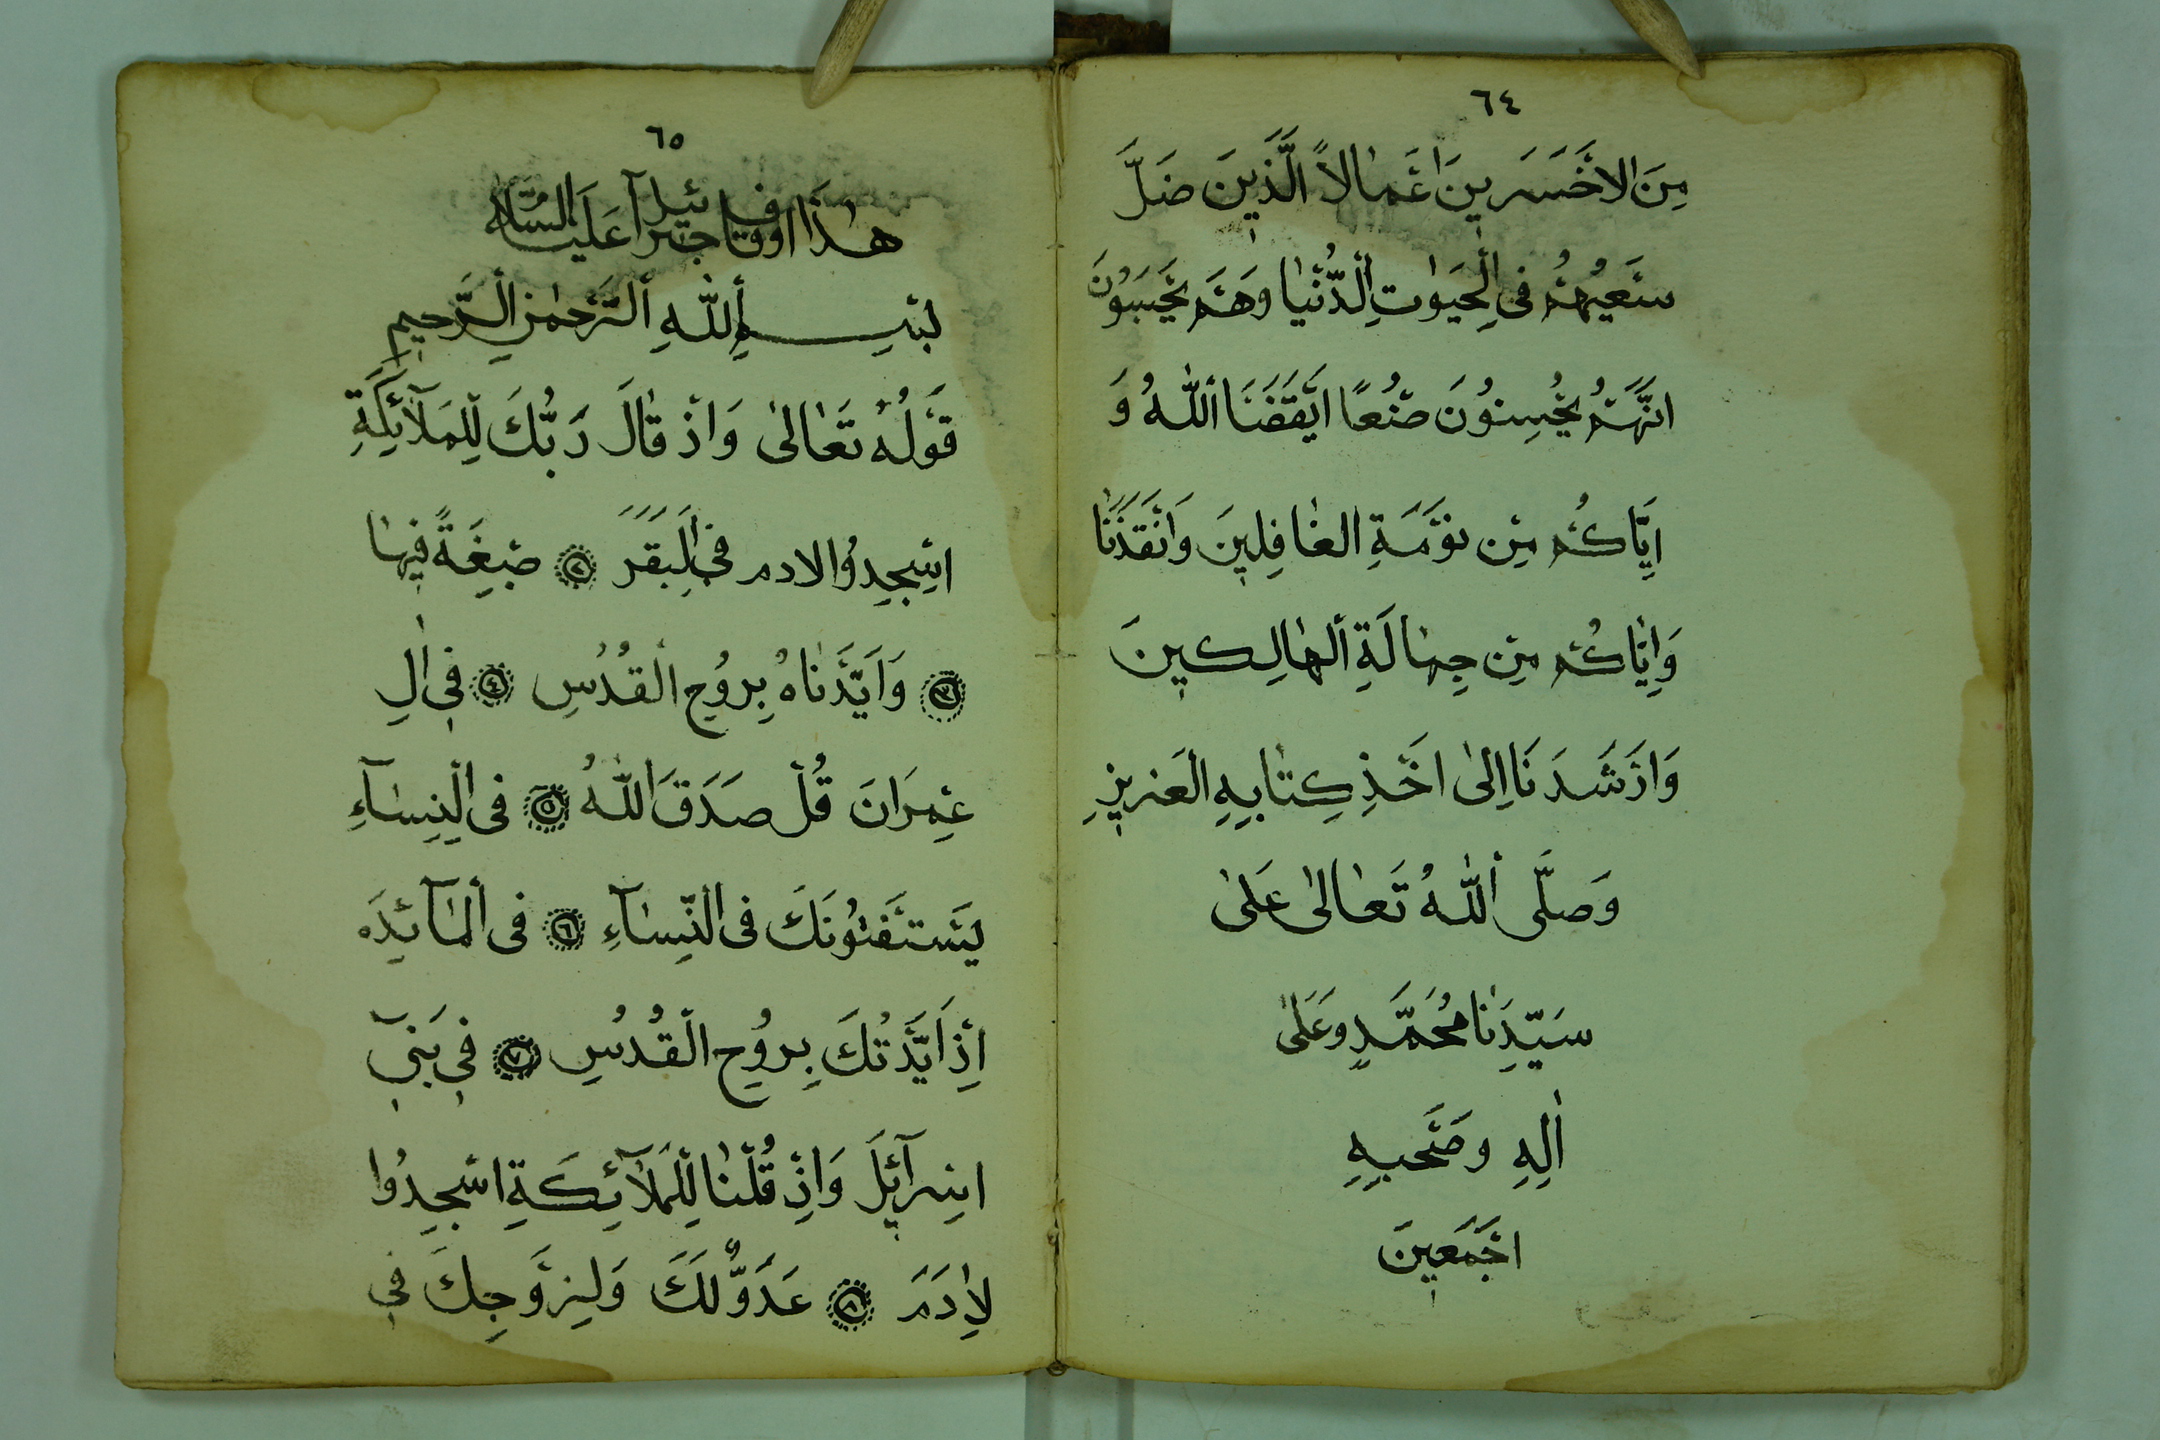 ٦٤
مِنَ الاَخْسَرِينَ اَعْمَالاً الَّذِينَ ضَلَّ
سَعْيُهُمْ فِى الْحَيٰوتِ الدُّنْيَا وَهُمْ يَحْسَبُونَ
اَنَّهُمْ يُحْسِنُونَ صُنْعًا اَيْقَضَنَا اللّٰهُ وَ
اِيَّاكُمْ مِنْ نَوْمَةِ الغَافِلِينَ وَاَنْقَذَنَا
وَاِيَّاكُمْ مِنْ جِهَالَةِ الهَالِكِينَ
وَارَشَدَنَا اِلىٰ اخْذِ كِتَابِهِ العَزِيزِ
وَصَلَّى اللّٰهُ تَعَالىٰ عَلىٰ
سَيِّدِنَا مُحَمَّدٍ وَعَلىٰ
اٰلِهِ وَصَحْبِهِ
اجْمَعِينَ
٦٥
هٰذَا اوفاق جبرآئيل عَلَيْهِ السَّلَام
بِسْمِ اللّٰهِ الرَّحْمٰنِ الرَّحِيمِ
قَوْلُهُ تَعَالىٰ وَاذْ قَالَ رَبُّكَ لِلْمَلآئِكَةِ
اسْجِدُوا لادم فِى الْبَقَرَ ٢ صَبْغَةً فِيهَا
٣ وَاَيَّدْنَاهُ بِرُوحِ الْقُدُسِ ٤ فِى اٰلِ
عِمْرَانَ قُلْ صَدَقَ اللّٰهُ ٥ فِى النِّسَآءِ
يَسْتَفْتُونَكَ فِى النِّسَآءِ ٦ فِى الْمَآئِدَه
اِذْ اَيَّدْتُكَ بِرُوحِ الْقُدُسِ ٧ فِى بَنِىٓ
اِسْرَآئِيلَ وَاِذْ قُلْنَا لِلْمَلآئِكَةِ اسْجِدُوا
لِاٰدَمَ ٨ عَدَوٌّ لَكَ وَلِزَوْجِكَ فِى